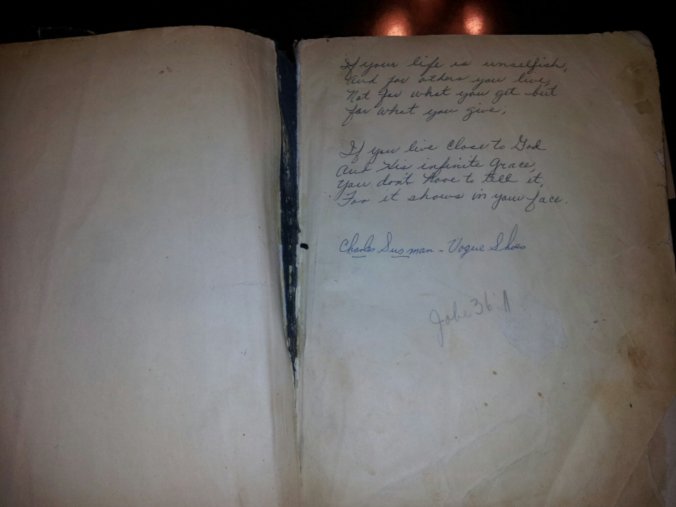 If your life is unselfish,
And for others you live,
Not for what you get but
for what you give,
If you live close to God
And His infinite Grace,
You don't have to tell it,
For it shows in your face.
Charles Susman - Vogue Shoes
Jobe 36